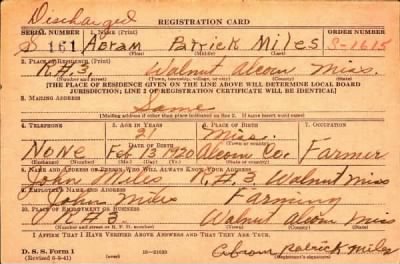 Discharged
REGISTRATION CARD
SERIAL NUMBER 1. NAME (Print) ORDER NUMBER
S 161 Abram Patrick Miles S-1615
(First) (Middle) (Last)
2. PLACE OF RESIDENCE (Print)
R.#3 Walnut Alcorn Miss.
(Number and street) (Town, township, village, or city) (County) (State)
[THE PLACE OF RESIDENCE GIVEN ON THE LINE ABOVE WILL DETERMINE LOCAL BOARD
JURISDICTION; LINE 2 OF REGISTRATION CERTIFICATE WILL BE IDENTICAL]
3. MAILING ADDRESS
Same
[Mailing address if other than place indicated on line 2. If same insert word same]
4. TELEPHONE 5. AGE IN YEARS 6. PLACE OF BIRTH 7. OCCUPATION
21 Miss.
None DATE OF BIRTH Alcorn Co. Farmer
Feb 13 1920
(Exchange) (Number) (Mo.) (Day) (Yr.) (State or country)
8. NAME AND ADDRESS OF PERSON WHO WILL ALWAYS KNOW YOUR ADDRESS
John Miles R.#3 Walnut Miss
9. EMPLOYER'S NAME AND ADDRESS
John Miles Farming
10. PLACE OF EMPLOYMENT OR BUSINESS
R#3 Walnut Alcorn Miss
(Number and street or R. F. D. number) (Town) (County) (State)
I AFFIRM THAT I HAVE VERIFIED ABOVE ANSWERS AND THAT THEY ARE TRUE.
D. S. S. Form 1 Abram Patrick Miles
(Revised 6-9-41) (Registrant's signature)